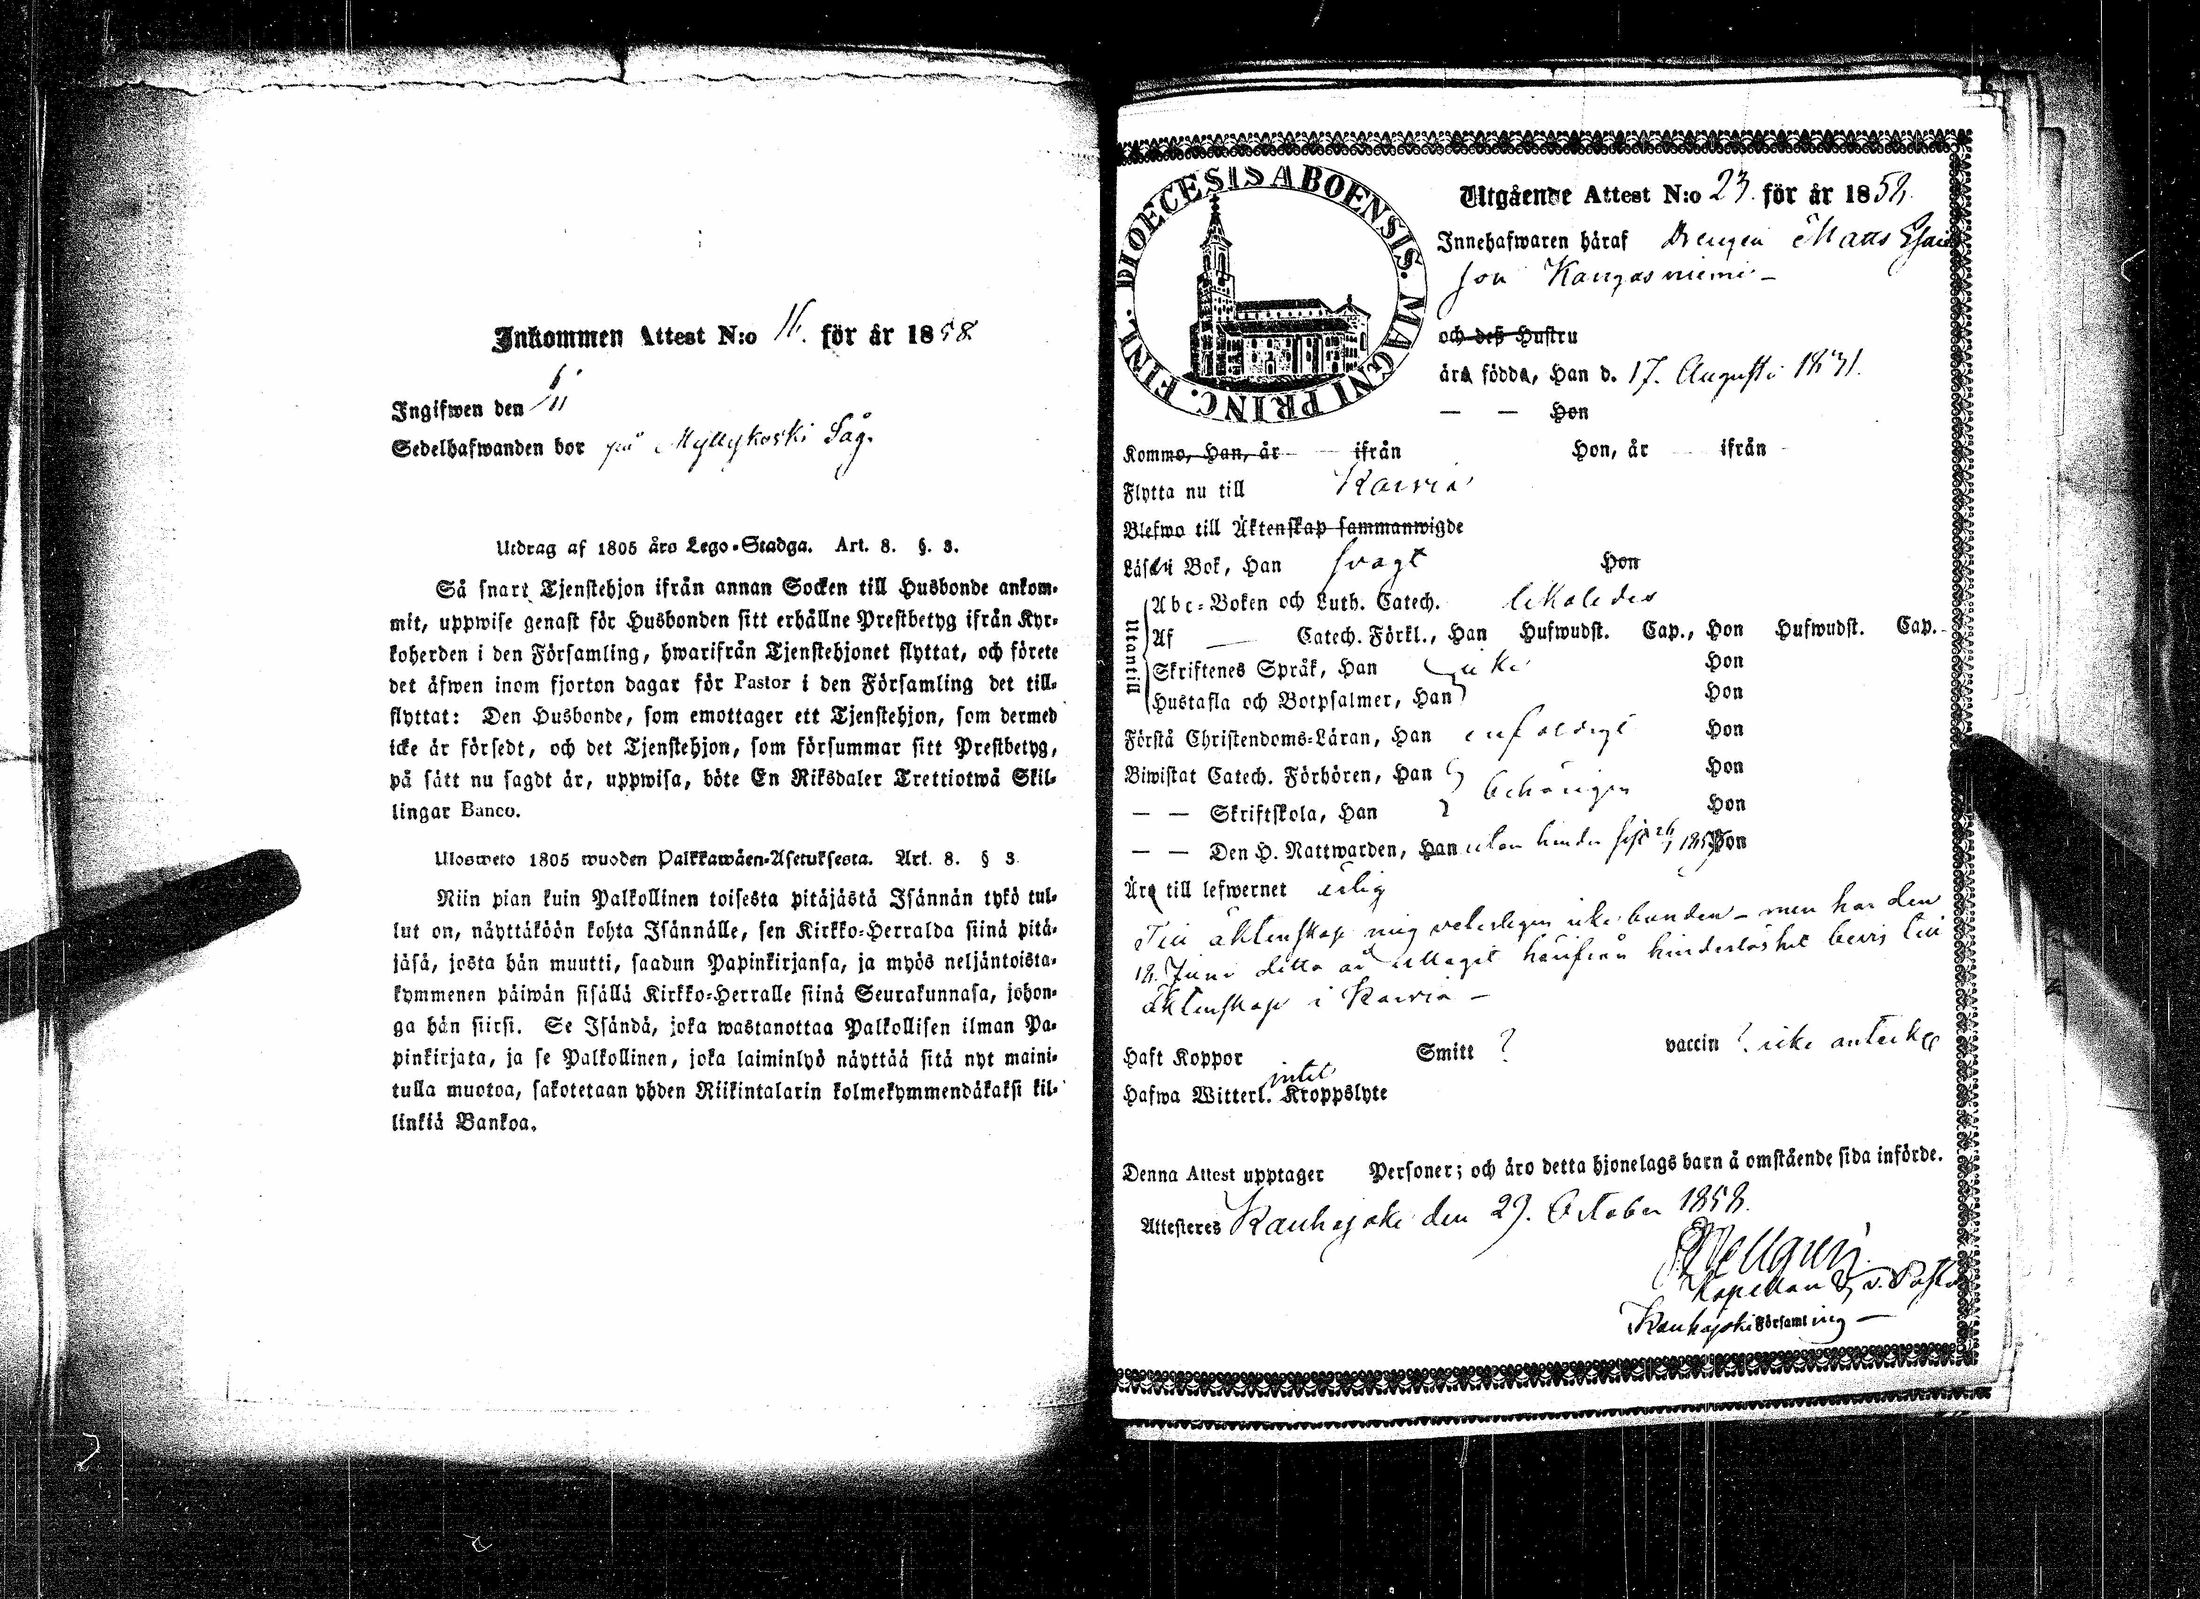 Inkommen Attest N:o 16. för år 1858
Ingifwen den 6/11
Sedelhafwanden bor på Myllykoski Såg.
Utdrag af 1805 års Lego-Stadga. Art. 8. §. 3.
Så snart Tjenstehjon ifrån annan Socken till Husbonde ankom-
mit, uppwise genast för Husbonden sitt erhållne Prestbetyg ifrån Kyr-
koherden i den Församling, hwarifrån Tjenstehjonet flyttat, och förete
det äfwen inom fjorton dagar för Pastor i den Församling det till-
flyttat: Den Husbonde, som emottager ett Tjenstehjon, som dermed
icke är försedt, och det Tjenstehjon, som försummar sitt Prestbetyg,
på sätt nu sagdt är, uppwisa, böte En Riksdaler Trettiotwå Skil-
lingar Banco.
Ulosweto 1805 wuoden Palkkawäen-Asetuksesta. Art. 8. § 3
Niin pian kuin Palkollinen toisesta pitäjästä Isännän tykö tul-
lut on, näyttäköön kohta Isännälle, sen Kirkko-Herralda siinä pitä-
jäsä, josta hän muutti, saadun Papinkirjansa, ja myös neljäntoista-
kymmenen päiwän sisällä Kirkko-Herralle siinä Seurakunnasa, johon-
ga hän siirsi. Se Isändä, joka wastanottaa Palkollisen ilman Pa-
pinkirjata, ja se Palkollinen, joka laiminlyö näyttää sitä nyt maini-
tulla muotoa, sakotetaan yhden Riikintalarin kolmekymmendäkaksi kil-
linkiä Bankoa.
DIOECESIS ABOENSIS. MAGNI PRINC. FINL.
Utgående Attest N:o 23. för år 1858.
Innehafwaren häraf Drengen Matts Esais
son Kangasniemi -
och deß Hustru
ära födda, Han d. 17. Augusti 1831.
— — Hon
Kommo, Han, år ifrån Hon, år ifrån
Flytta nu till Karvia
Blefwo till Äktenskap sammanwigde
Läsa i Bok, Han svagt Hon
Utantill
Abc-Boken och Luth. Catech. likaledes
Af Catech. Förkl., Han Hufwudst. Cap., Hon Hufwudst. Cap.
Skriftenes Språk, Han icke Hon
Hustafla och Botpsalmer, Han Hon
Förstå Christendoms-Läran, Han enfaldigt Hon
Biwistat Catech. Förhören, Han behörigen Hon
— — Skriftskola, Han Hon
— — Den H. Nattwarden, Han utan hinder Hon
Ära till lefwernet ärlig
Till äktenskap mig veterligen icke bunden - men har den
18. Juni detta år uttagit härifrån hinderlöshet bevis till
äktenskap i Karvia -
Haft Koppor Smitt ? vaccin ? icke anteckn
Hafwa Witterl. intet Kroppslyte
Denna Attest upptager Personer; och äro detta hjonelags barn å omstående sida införde.
Attesteres Kauhajoki den 29. October 1858.
Kapellan & v. Pastor
Kauhajoki Församling -